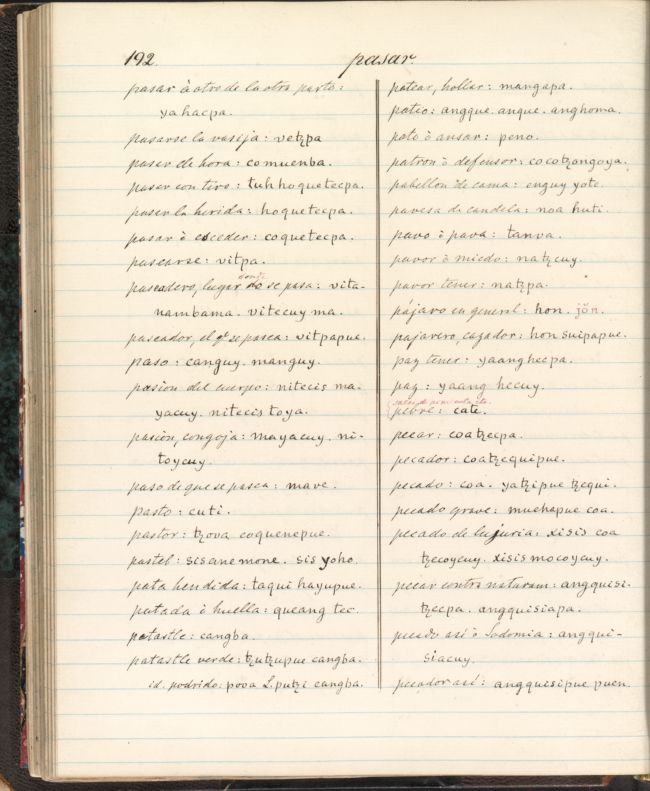 192.
pasar.
pasar à otro de la otra parte:
yahacpa.
pasarse la vasija: vetꜩpa
pasar de hora: comuenba.
pasar con tiro: tuhhoquetecpa.
pasar la herida: hoquetecpa.
pasar ò exceder: coquetecpa.
pasearse: vitpa.
donde
paseadero, lugar do se pasa: vita-
nambama. vitecuy ma.
paseador, el qᵉ se pasea: vitpapue.
paso: canguy. manguy.
pasion del cuerpo: nitecis ma-
yacuy. nitecis toya.
pasion, congoja: mayacuy. ni-
toycuy.
paso de que se pasea: mave.
pasto: cuti.
pastor: ꜩova coquenepue.
pastel: sisanemone. sis yoho.
pata hendida: taqui hayupue.
patada ò huella: queang tec.
patastle: cangba.
patastle verde: ꜩuꜩupue cangba.
id. podrido: pova l. putꜩi cangba.
patear, hollar: mangapa.
patio: angque. anque. anghoma.
pato ò ansar: peno.
patron ò defensor: cocoꜩongoya.
pabellon de cama: enguy yote.
pavesa de candela: noa huti.
pavo ò pava: tanva.
pavor ò miedo: naꜩcuy.
pavor tener: naꜩpa.
pájaro en general: hon. jŏn.
pajarero, cazador: hon suipapue.
paz tener: yaanghecpa.
paz: yaang hecuy.
salsa de pimienta
pebre: cate.
pecar: coaꜩecpa.
pecador: coaꜩequipue.
pecado: coa. yaꜩipue ꜩequi.
pecado grave: muchapue coa.
pecado de lujuria: xisis coa
ꜩecoycuy. xisis mocoycuy.
pecar contra naturam: angquisi-
ꜩecpa. angquisiapa.
pecado así ò Sodomia: angqui-
siacuy.
pecador así: angquisipue puen.